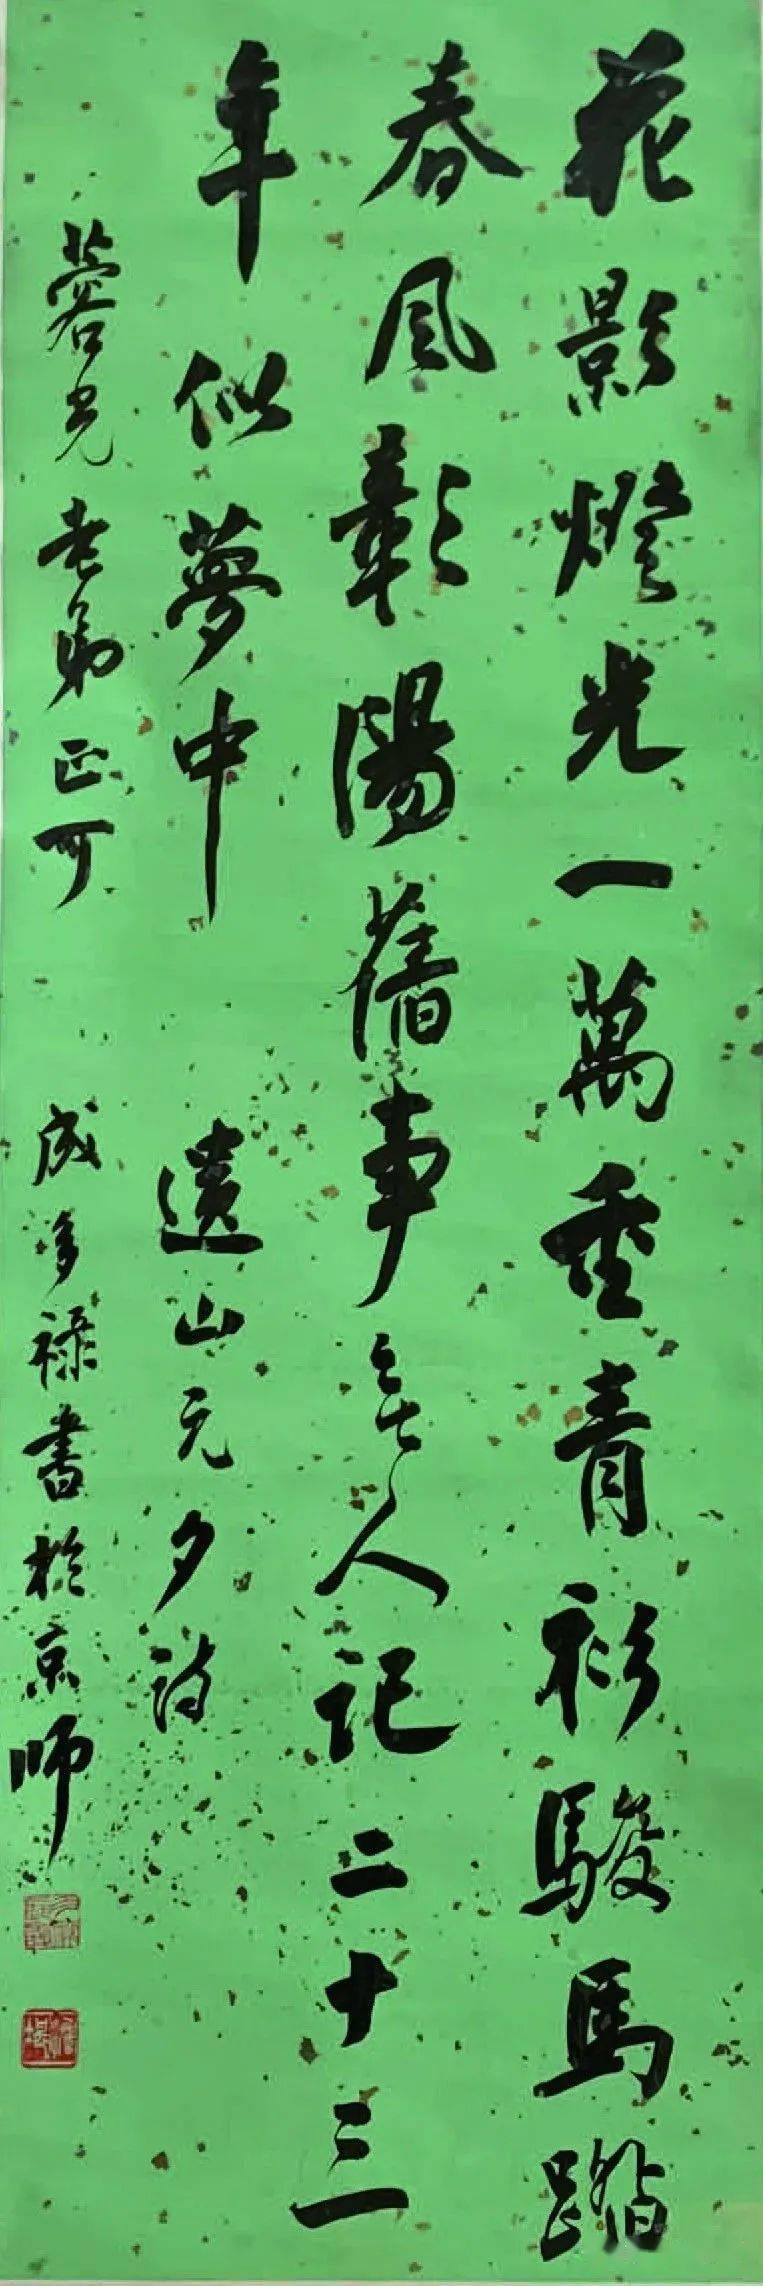 花影燈光一萬重青衫駿馬踏
春風彰陽舊事無人記二十三
年似夢中
遺山元夕詩
蓉光老弟正可
成多祿書於京師